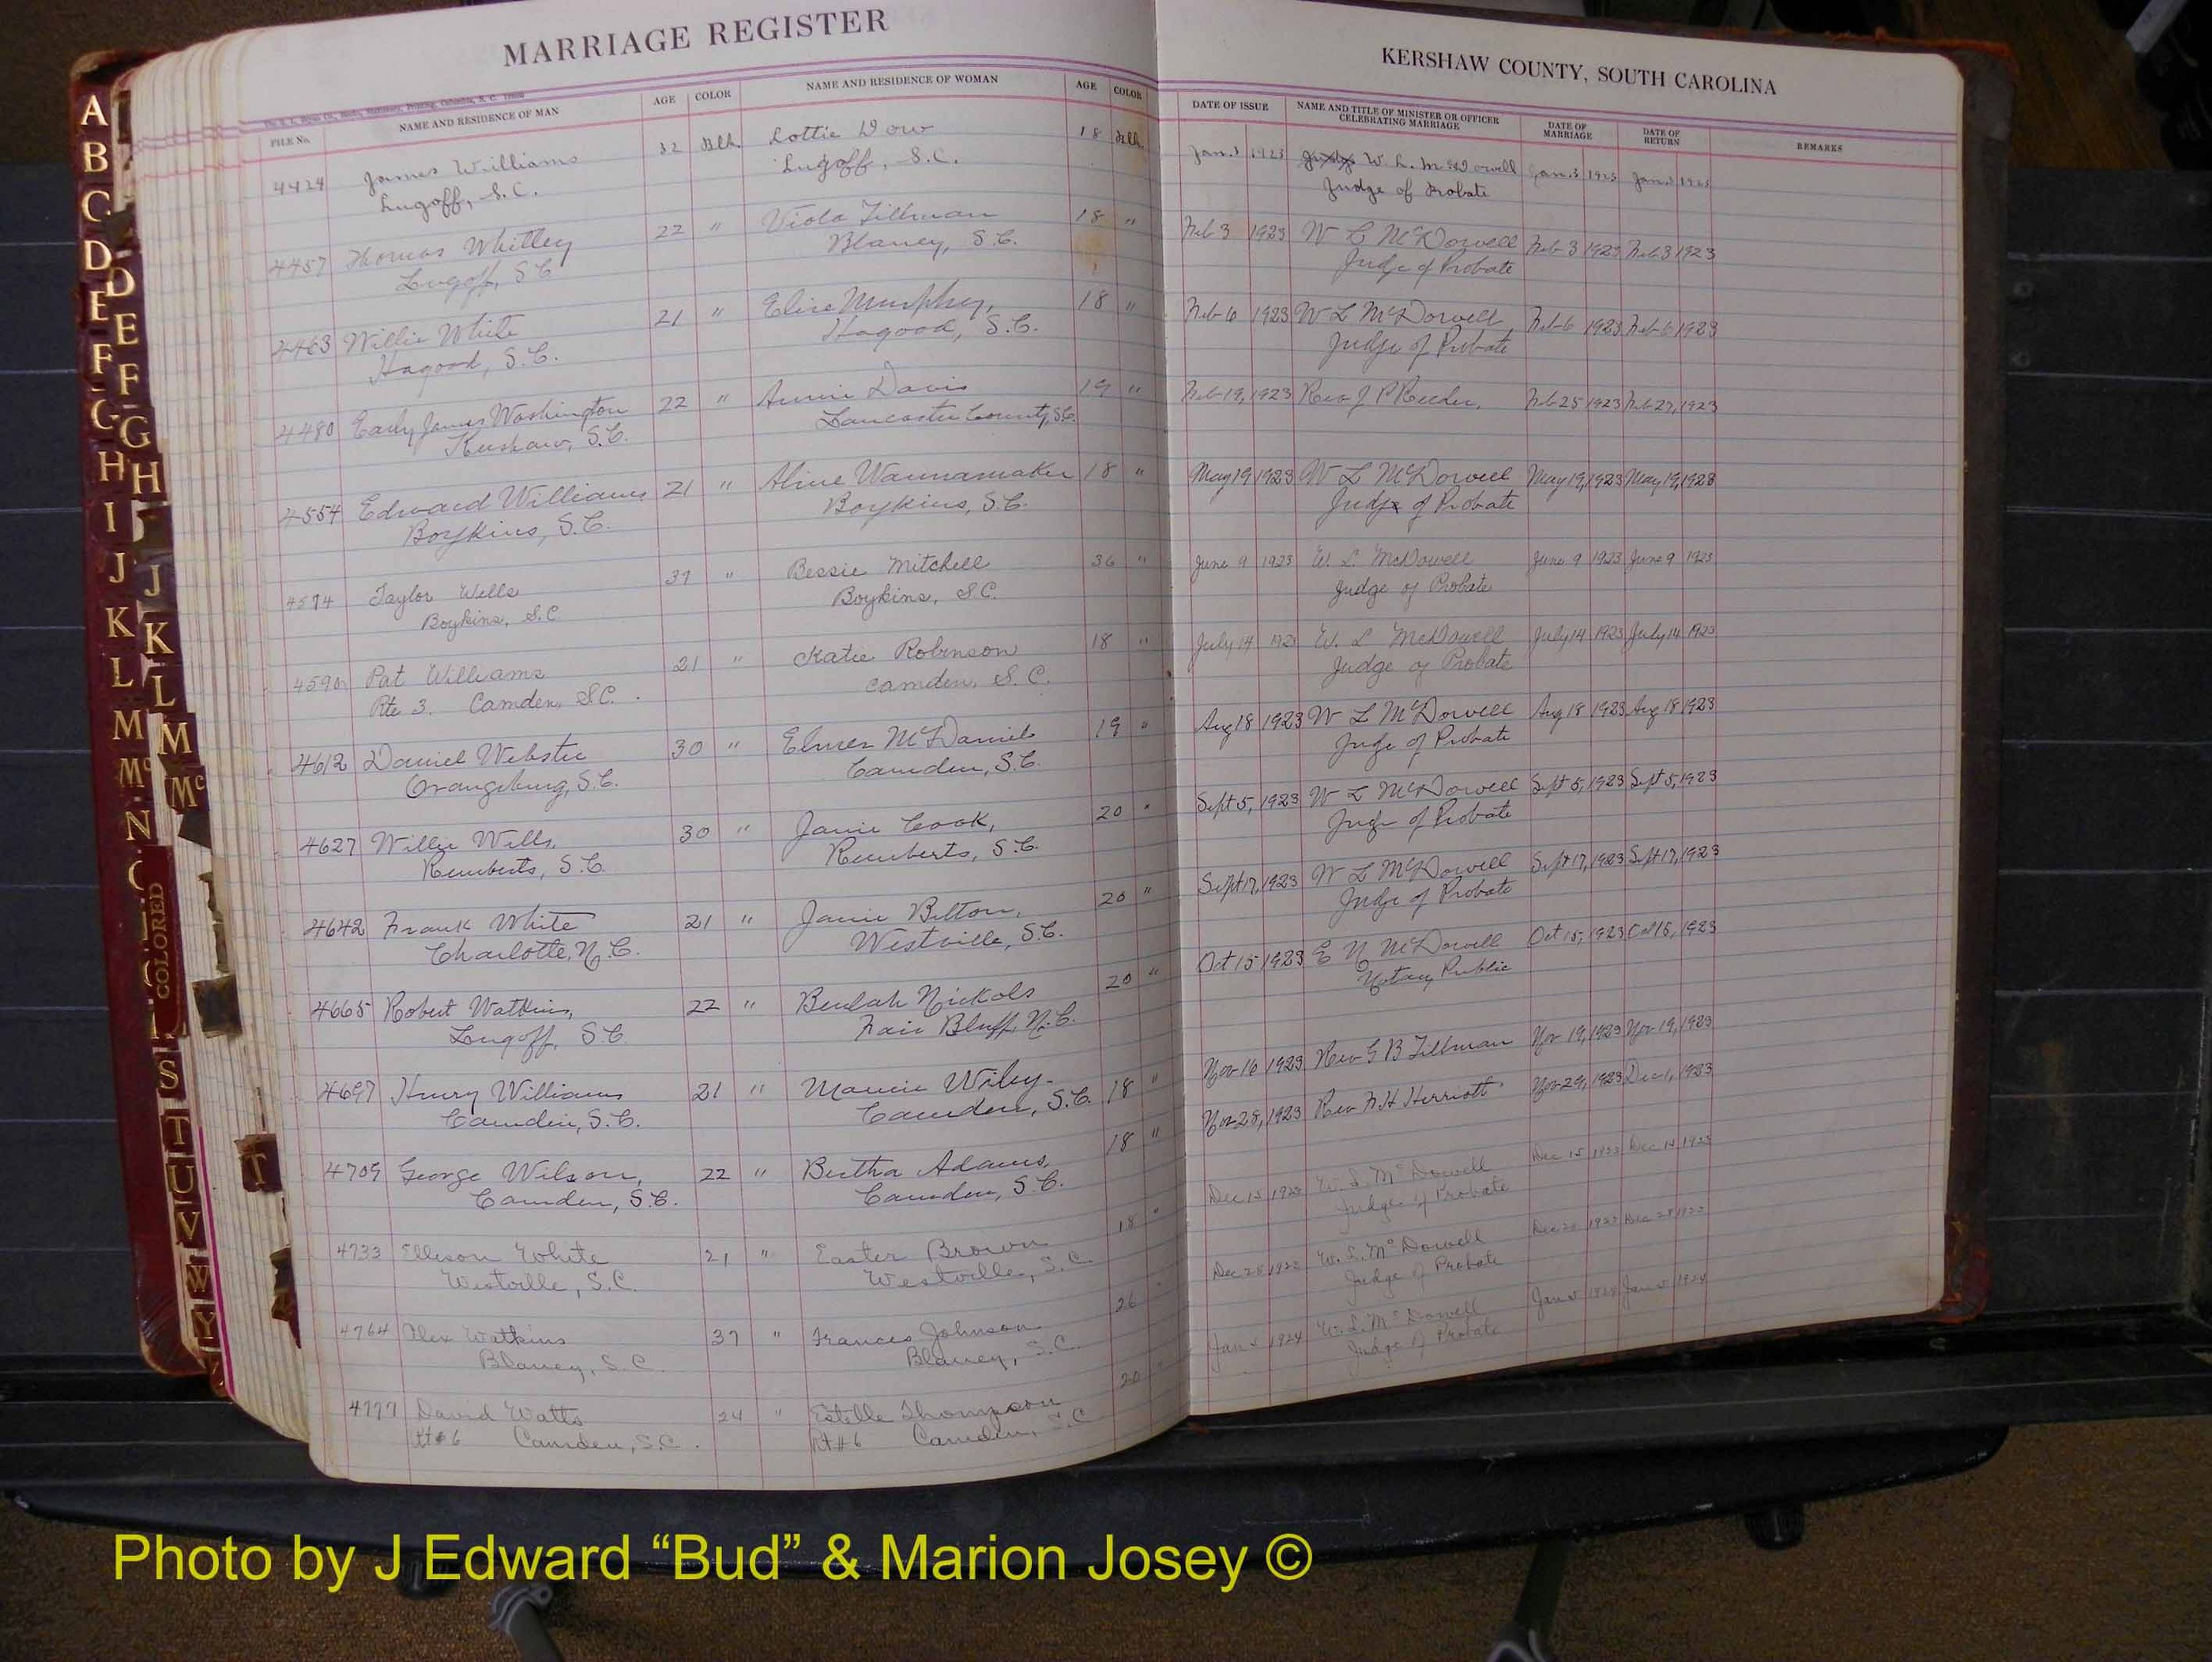 MARRIAGE REGISTER
KERSHAW COUNTY, SOUTH CAROLINA
FILE No. NAME AND RESIDENCE OF MAN AGE COLOR NAME AND RESIDENCE OF WOMAN AGE COLOR DATE OF ISSUE NAME AND TITLE OF MINISTER OR OFFICER CELEBRATING MARRIAGE DATE OF MARRIAGE DATE OF RETURN REMARKS
4424 James Williams 32 Blk. Lottie Dow 18 Blk. Jan. 3 1923 W. L. McDowell Jan. 3 1923 Jan. 3 1923
Lugoff, S.C. Lugoff, S.C. Judge of Probate
4457 Thomas Whitley 22 " Viola Tillman 18 " Feb 3 1923 W L McDowell Feb 3 1923 Feb 3 1923
Lugoff, S.C. Blaney, S.C. Judge of Probate
4463 Willie White 21 " Elise Murphy, 18 " Feb 6 1923 W L McDowell Feb 6 1923 Feb 6 1923
Hagood, S.C. Hagood, S.C. Judge of Probate
4480 Early James Washington 22 " Annie Davis 19 " Feb 19, 1923 Rev J P Reeder. Feb 25 1923 Feb 27, 1923
Kershaw, S.C. Lancaster County, S.C.
4554 Edward Williams 21 " Aline Wannamaker 18 " May 19 1923 W L McDowell May 19, 1923 May 19, 1923
Boykins, S.C. Boykins, S.C. Judge of Probate
4574 Taylor Wells 37 " Bessie Mitchell 36 " June 9 1923 W. L. McDowell June 9 1923 June 9 1923
Boykins, S.C. Boykins, S.C. Judge of Probate
4590 Pat Williams 21 " Katie Robinson 18 " July 14 1923 W. L McDowell July 14 1923 July 14 1923
Rte 3. Camden, S.C. Camden, S.C. Judge of Probate
4612 Daniel Webster 30 " Elmer McDaniels 19 " Aug 18 1923 W L McDowell Aug 18 1923 Aug 18 1923
Orangeburg, S.C. Camden, S.C. Judge of Probate
4627 Willie Wells, 30 " Janie Cook, 20 " Sept 5, 1923 W L McDowell Sept 5, 1923 Sept 5, 1923
Remberts, S.C. Remberts, S.C. Judge of Probate
4642 Frank White 21 " Janie Belton, 20 " Sept 17, 1923 W L McDowell Sept 17, 1923 Sept 17, 1923
Charlotte, N.C. Westville, S.C. Judge of Probate
4665 Robert Watkins, 22 " Beulah Nickols 20 " Oct 15 1923 E N McDowell Oct 15, 1923 Oct 15, 1923
Lugoff, S.C. Fair Bluff, N.C. Notary Public
4697 Henry Williams 21 " Mamie Wiley 18 " Nov 16 1923 Rev G B Tillman Nov 19, 1923 Nov 19, 1923
Camden, S.C. Camden, S.C.
4709 George Wilson, 22 " Bertha Adams, 18 " Nov 28, 1923 Rev Herriott Nov 29, 1923 Dec 1, 1923
Camden, S.C. Camden, S.C.
4733 Ellison White 21 " Easter Brown 18 " Dec 15 1923 W. L. McDowell Dec 15 1923 Dec 1923
Westville, S.C. Westville, S.C. Judge of Probate
4764 Alex Watkins 37 " Frances Johnson 26 " Dec 28 1923 W. L. McDowell Dec 1923 Dec 1923
Blaney, S.C. Blaney, S.C. Judge of Probate
4777 David Watts 24 " Estelle Thompson 20 " Jan 1924 W. L. McDowell Jan Jan 1924
Rt #6 Camden, S.C. Rt #6 Camden, S.C. Judge of Probate
A
B
C
D
E
F
G
H
I
J
K
L
M
Mc
N
COLORED
S
T
U
V
W
Y
D
E
F
G
H
J
K
L
M
Mc
T
Photo by J Edward “Bud” & Marion Josey ©